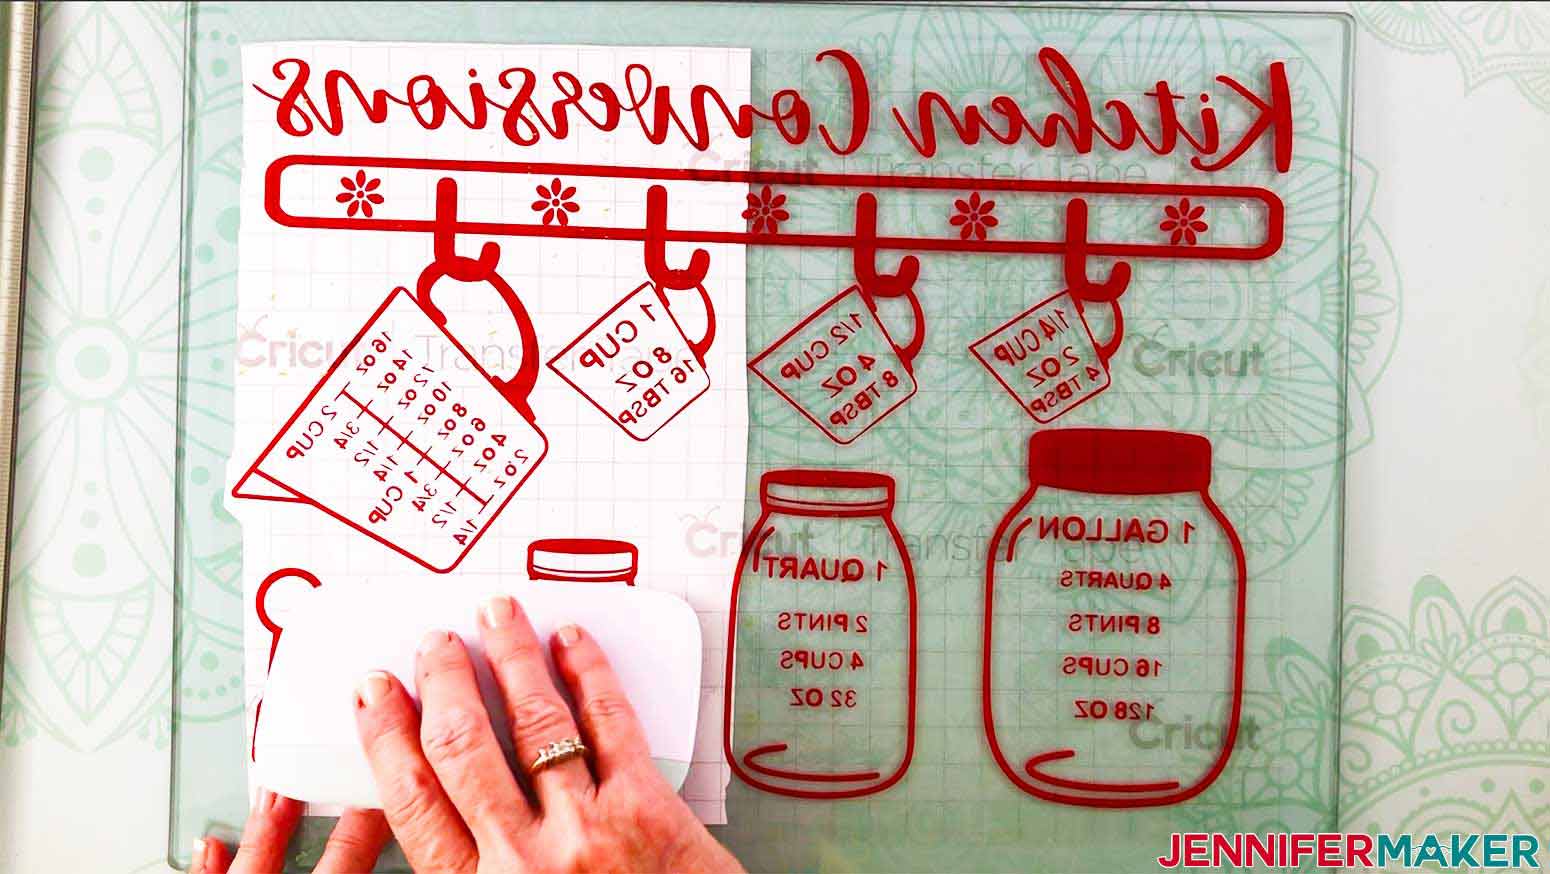 Kitchen Conversions
Cricut Transfer Tape
1/4 CUP
2 OZ
4 TBSP
1/2 CUP
4 OZ
8 TBSP
1 CUP
8 OZ
16 TBSP
16 oz
14 oz
12 oz
10 oz
8 oz
6 oz
4 oz
2 oz
2 CUP
3/4
1/2
1/4
1 CUP
3/4
1/2
1/4
Cricut Transfer Tape
Cricut
Cricut Transfer Tape
1 GALLON
4 QUARTS
8 PINTS
16 CUPS
128 OZ
1 QUART
2 PINTS
4 CUPS
32 OZ
Cricut
JENNIFERMAKER